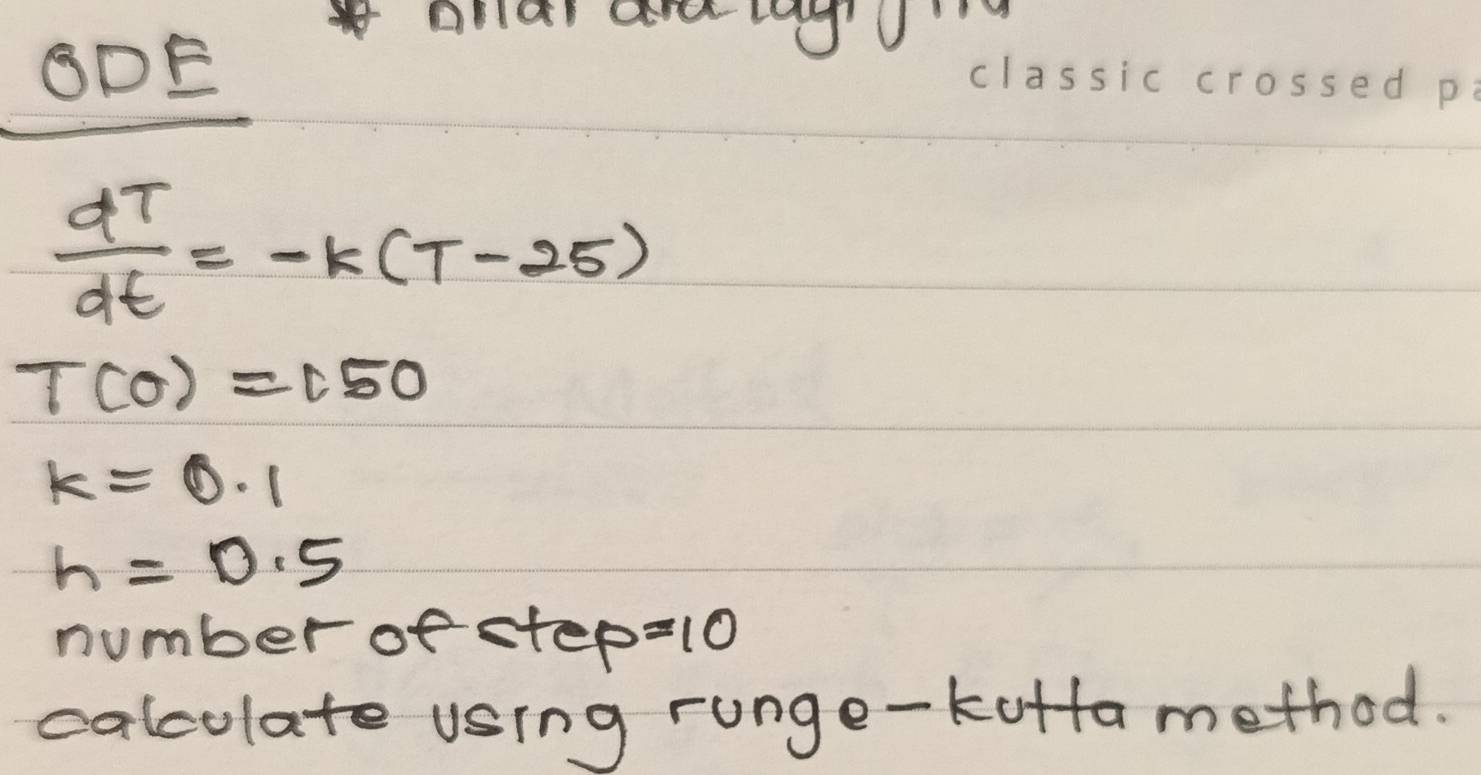 ODE
classic crossed
dT/dt = -k(T-25)
T(0) = 150
k = 0.1
h = 0.5
number of step=10
calculate using runge-kutta method.